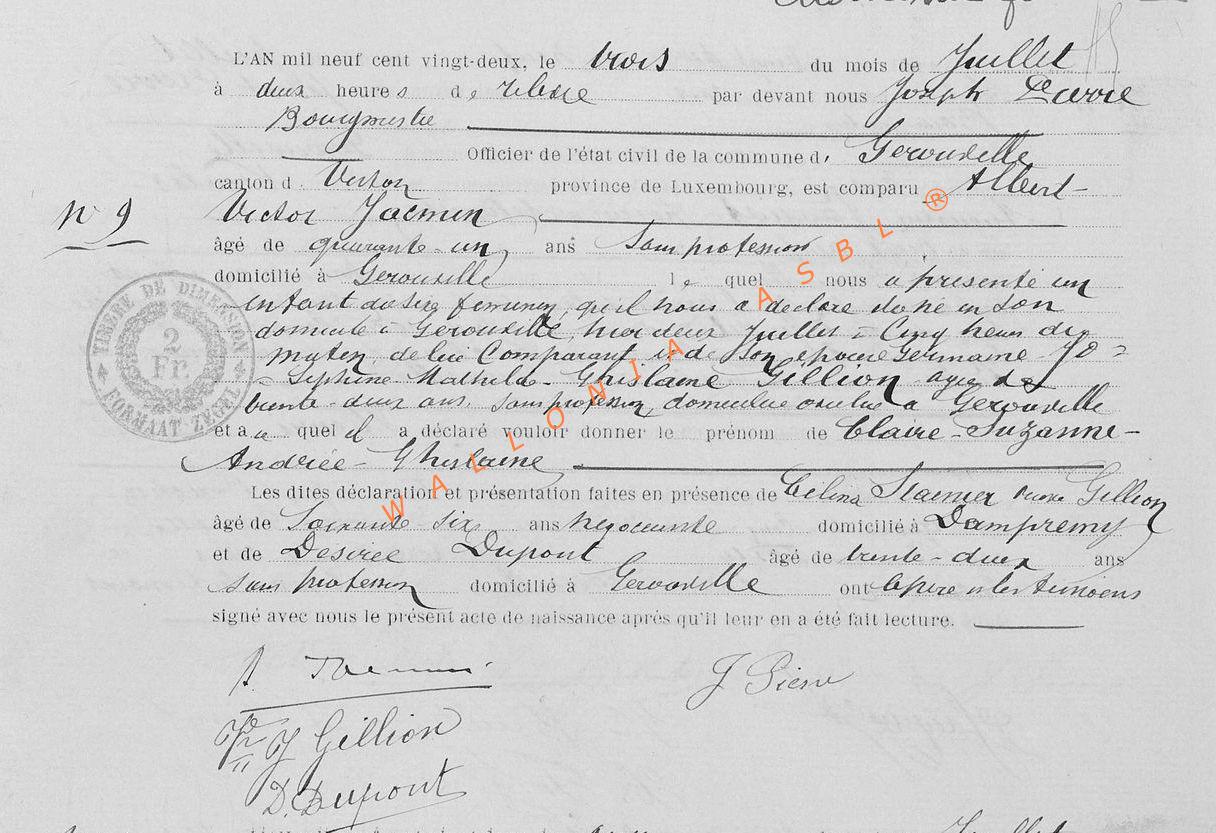 L'AN mil neuf cent vingt-deux, le trois du mois de Juillet
à deux heures de relevée par devant nous Joseph
Bourgmestre
Officier de l'état civil de la commune de Gerouville
canton de Virton province de Luxembourg, est comparu Albert-
Victor Jacmin
n° 9
âgé de quarante-un ans sans profession
domicilié à Gerouville lequel nous a présenté un
enfant du sexe féminin, qu'il nous a déclaré être né en son
domicile à Gerouville, hier deux Juillet à cinq heures du
matin, de lui Comparant et de son épouse Germaine-Jo=
=Sephine Mathilde-Ghislaine Gillion agée de
trente deux ans, sans profession, domiciliée avec lui à Gerouville
et auquel il a déclaré vouloir donner le prénom de Claire-Suzanne-
Andrée-Ghislaine
Les dites déclaration et présentation faites en présence de Célina Gillion
âgé de Soixante six ans négociante domicilié à Dampremy
et de Désirée Dupont âgé de trente-deux ans
sans profession domicilié à Gerouville ont le père et les témoins
signé avec nous le présent acte de naissance après qu'il leur en a été fait lecture.
J Gillion
D. Dupont
TIMBRE DE DIMENSION
2
Fr.
FORMAAT ZEGEL
WALLONIA ASBL ®